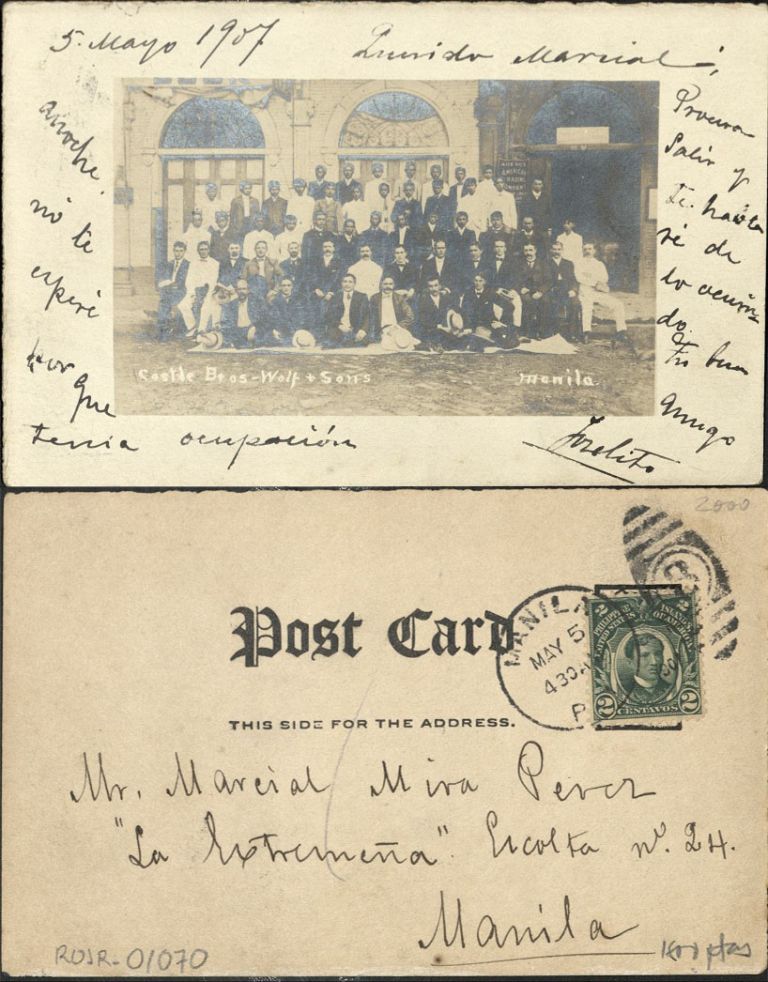 5. Mayo 1907
Querido Marcial
Procura
Salir y
te habla
ré de
lo ocurri
do.
Tu buen
amigo
Joselito
anoche,
nó te
esperé
por
que
tenia ocupación
AMERICAN
Castle Bros-Wolf + Sons
manila
2000
Post Card
THIS SIDE FOR THE ADDRESS.
MANILA
MAY 5
430A
P
PHILIPPINE ISLANDS
UNITED STATES OF AMERICA
2 2
2 CENTAVOS 2
Mr. Marcial Mira Perez
"La Extremeña". Escolta nº. 24.
Manila
ROJR-01070
ptas